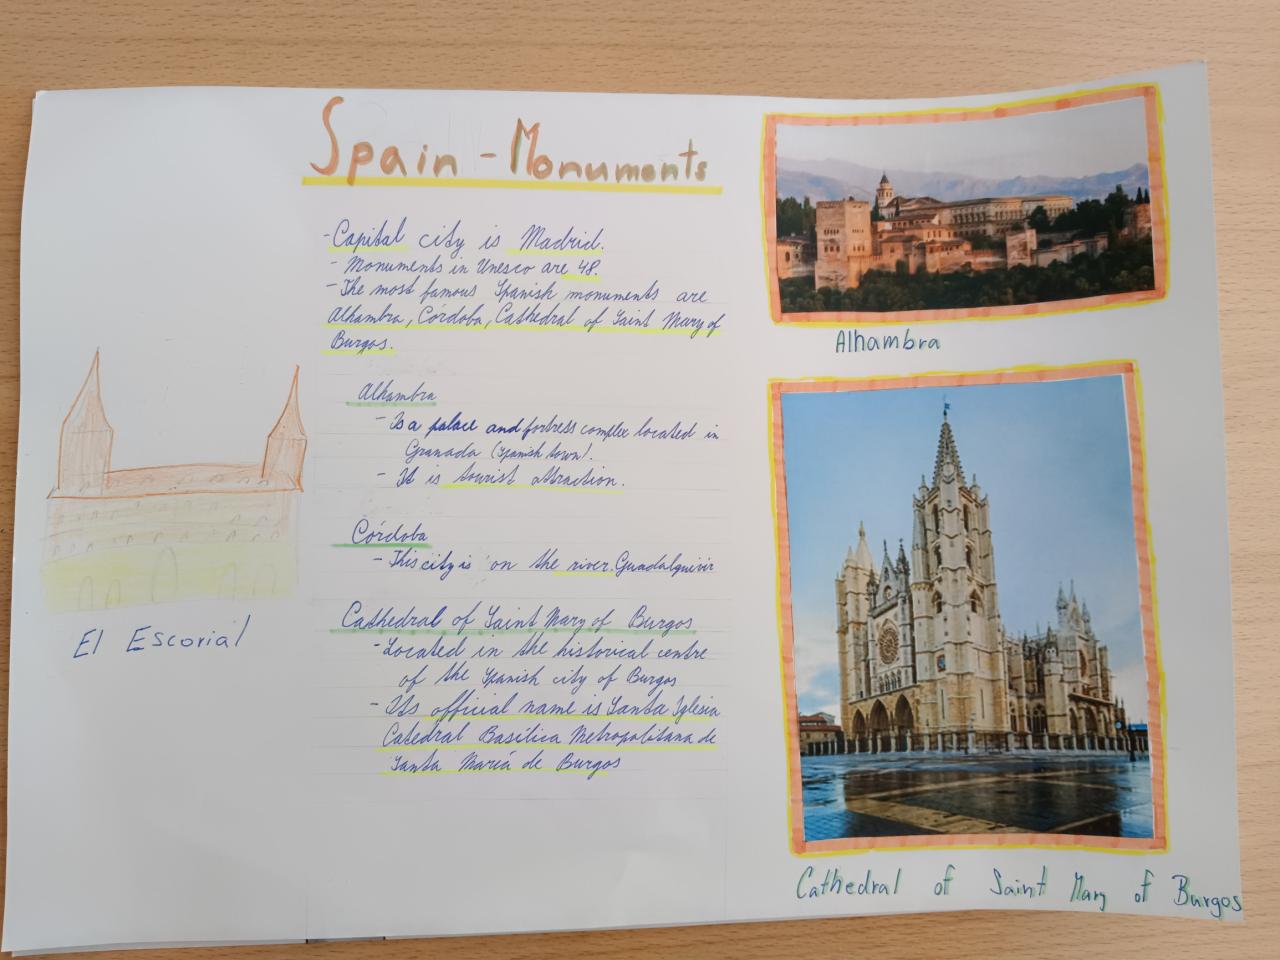 Spain - Monuments
- Capital city is Madrid.
- Monuments in Unesco are 48.
- The most famous Spanish monuments are
Alhambra, Córdoba, Cathedral of Saint Mary of
Burgos.
Alhambra
- Is a palace and fortress complex located in
Granada (Spanish town).
- It is tourist attraction.
Córdoba
- This city is on the river Guadalquivir
Cathedral of Saint Mary of Burgos
- Located in the historical centre
of the Spanish city of Burgos
- Its official name is Santa Iglesia
Catedral Basílica Metropolitana de
Santa María de Burgos
El Escorial
Alhambra
Cathedral of Saint Mary of Burgos